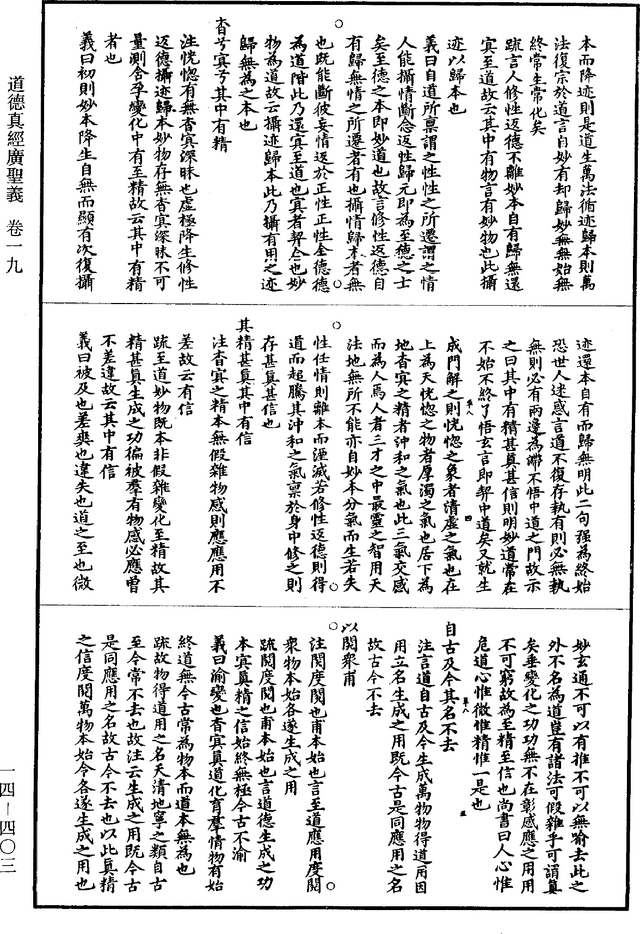 道德真經廣聖義　卷一九
本而降迹則是道生萬法循迹歸本則萬
法復宗於道言自妙有却歸妙無無始無
終常生常化矣
疏言人修性返德不離妙本自有歸無還
冥至道故云其中有物言有妙物也此攝
迹以歸本也
義曰自道所稟謂之性性之所遷謂之情
人能攝情斷念返性歸元即為至德之士
矣至德之本即妙道也故言修性返德自
有歸無情之所遷者有也攝情歸本者無
也既能斷彼妄情返於正性正性全德德
為道階此乃還冥至道也冥者契合也妙
物為道故云攝迹歸本此乃攝有用之迹
歸無為之本也
杳兮冥兮其中有精
注恍惚有無杳冥深昧也虛極降生修性
返德攝迹歸本妙物存無杳冥深昧不可
量測含孕變化中有至精故云其中有精
者也
義曰初則妙本降生自無而顯有次復攝
迹還本自有而歸無明此二句强為終始
恐世人迷惑言道不復存執有則必無執
無則必有兩邊為滯不悟中道之門故示
之曰其中有精甚真甚信則明妙道常在
不始不終了悟玄言即契中道矣又就生
成門解之則恍惚之象者清虛之氣也在
上為天恍惚之物者厚濁之氣也居下為
地杳冥之精者沖和之氣也此三氣交感
而為人焉人者三才之中最靈之智用天
法地無所不能亦自妙本分氣而生若失
性任情則離本而湮滅若修性返德則得
道而超騰其沖和之氣稟於身中修之則
存甚真甚信也
其精甚真其中有信
注杳冥之精本無假雜物感則應應用不
差故云有信
疏至道妙物既本非假雜變化至精故其
精甚真生成之功徧被羣有物感必應曾
不差違故云其中有信
義曰被及也差爽也違失也道之至也微
妙玄通不可以有推不可以無喻去此之
外不名為道豈有諸法可假雜乎可謂真
矣垂變化之功功無不在彰感應之用用
不可窮故為至精至信也尚書曰人心惟
危道心惟微惟精惟一是也
自古及今其名不去
注言道自古及今生成萬物物得道用因
用立名生成之用既今古是同應用之名
故古今不去
以閱衆甫
注閱度閱也甫本始也言至道應用度閱
衆物本始各遂生成之用
疏閱度閱也甫本始也言道德生成之功
本冥真精之信始終無極今古不渝
義曰渝變也杳冥真道化育羣情物有始
終道無今古常為物本而道本無為也
疏故物得道用之名天清地寧之類自古
至今常不去也故注云生成之用既今古
是同應用之名故古今不去也以此真精
之信度閱萬物本始令各遂生成之用也
一四—四〇三